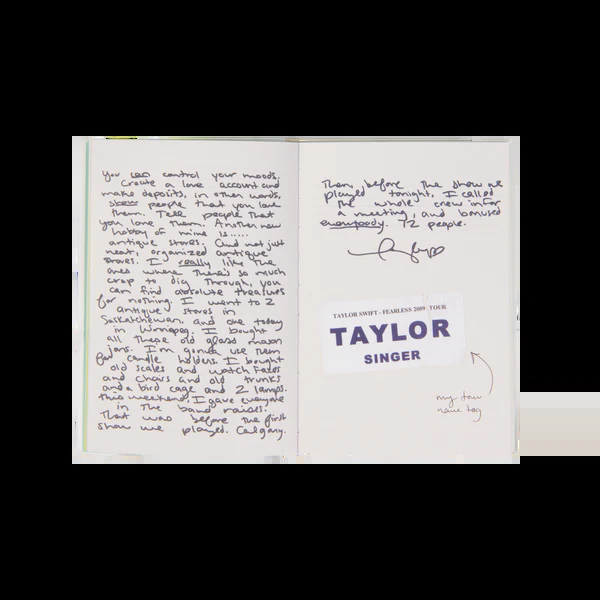 You can control your moods.
Create a love account and
make deposits, in other words,
show people that you love
them. Tell people that
you love them. Another new
hobby of mine is.....
antique stores. And not just
neat, organized antique
stores. I really like the
ones where there's so much
crap to dig through, you
can find absolute treasures
for nothing. I went to 2
antique stores in
Saskatchewan, and one today
in Winnipeg. I bought
all these old glass mason
jars. I'm gonna use them
for candle holders. I bought
old scales and watch faces
and chairs and old trunks
and a bird cage and 2 lamps.
This weekend, I gave everyone
in the band raises.
That was before the first
show we played. Calgary.
Then, before the show we
played tonight, I called
the whole crew in for
a meeting, and bonused
everybody. 72 people.
TAYLOR SWIFT - FEARLESS 2009 TOUR
TAYLOR
SINGER
my tour
name tag